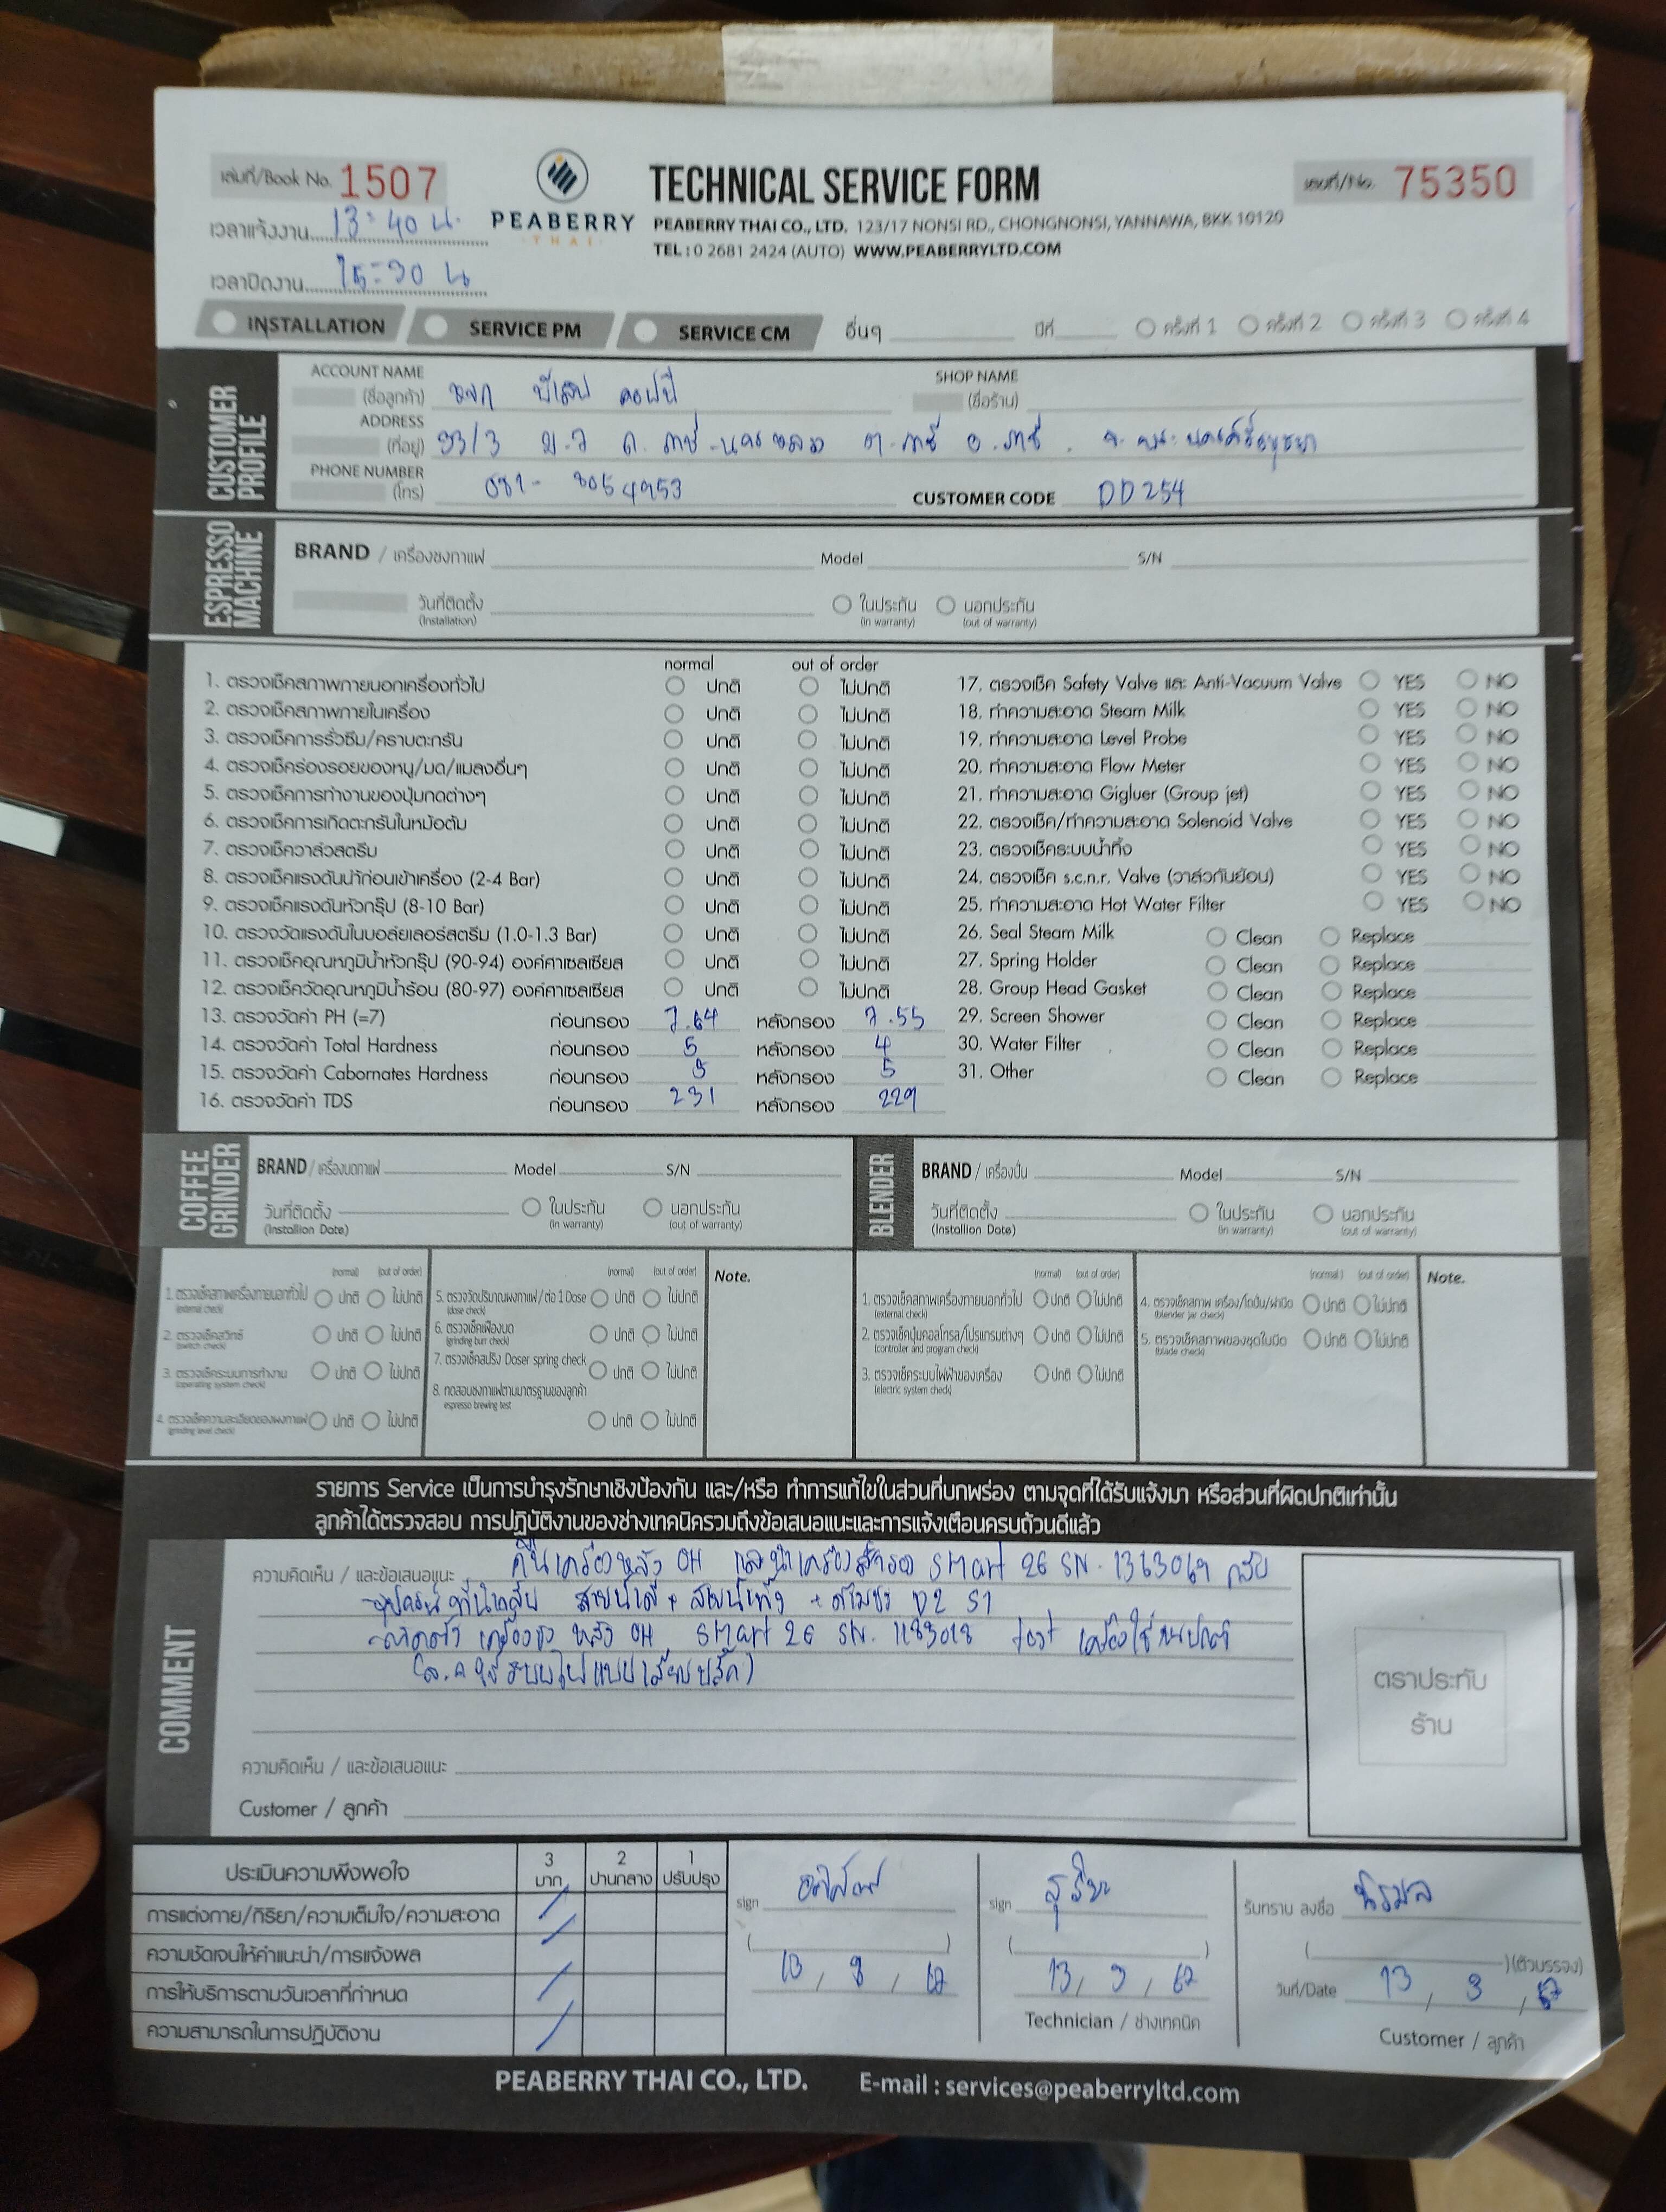 เล่มที่/Book No. 1507
PEABERRY
THAI
TECHNICAL SERVICE FORM
PEABERRY THAI CO., LTD. 123/17 NONSI RD., CHONGNONSI, YANNAWA, BKK 10120
TEL : 0 2681 2424 (AUTO) WWW.PEABERRYLTD.COM
เลขที่/No. 75350
เวลาแจ้งงาน 13:40 น.
เวลาปิดงาน น
INSTALLATION SERVICE PM SERVICE CM อื่นๆ ปีที่ ครั้งที่ 1 ครั้งที่ 2 ครั้งที่ 3 ครั้งที่ 4
CUSTOMER PROFILE
ACCOUNT NAME
(ชื่อลูกค้า)
SHOP NAME
(ชื่อร้าน)
ADDRESS
(ที่อยู่) 93/3 ต.ภาชี อ.ภาชี จ.พระนครศรีอยุธยา
PHONE NUMBER
(โทร) 081-8054953
CUSTOMER CODE DD254
ESPRESSO MACHINE
BRAND / เครื่องชงกาแฟ Model S/N
วันที่ติดตั้ง (Installation) ในประกัน (in warranty) นอกประกัน (out of warranty)
normal out of order
1. ตรวจเช็คสภาพภายนอกเครื่องทั่วไป ปกติ ไม่ปกติ
2. ตรวจเช็คสภาพภายในเครื่อง ปกติ ไม่ปกติ
3. ตรวจเช็คการรั่วซึม/คราบตะกรัน ปกติ ไม่ปกติ
4. ตรวจเช็คร่องรอยของหนู/มด/แมลงอื่นๆ ปกติ ไม่ปกติ
5. ตรวจเช็คการทำงานของปุ่มกดต่างๆ ปกติ ไม่ปกติ
6. ตรวจเช็คการเกิดตะกรันในหม้อต้ม ปกติ ไม่ปกติ
7. ตรวจเช็ควาล์วสตรีม ปกติ ไม่ปกติ
8. ตรวจเช็คแรงดันน้ำก่อนเข้าเครื่อง (2-4 Bar) ปกติ ไม่ปกติ
9. ตรวจเช็คแรงดันหัวกรุ๊ป (8-10 Bar) ปกติ ไม่ปกติ
10. ตรวจวัดแรงดันในบอล์ยเลอร์สตรีม (1.0-1.3 Bar) ปกติ ไม่ปกติ
11. ตรวจเช็คอุณหภูมิน้ำหัวกรุ๊ป (90-94) องค์ศาเซลเซียส ปกติ ไม่ปกติ
12. ตรวจเช็ควัดอุณหภูมิน้ำร้อน (80-97) องค์ศาเซลเซียส ปกติ ไม่ปกติ
13. ตรวจวัดค่า PH (=7) ก่อนกรอง 7.64 หลังกรอง 7.55
14. ตรวจวัดค่า Total Hardness ก่อนกรอง 5 หลังกรอง 4
15. ตรวจวัดค่า Cabornates Hardness ก่อนกรอง 5 หลังกรอง 5
16. ตรวจวัดค่า TDS ก่อนกรอง 231 หลังกรอง 229
17. ตรวจเช็ค Safety Valve และ Anti-Vacuum Valve YES NO
18. ทำความสะอาด Steam Milk YES NO
19. ทำความสะอาด Level Probe YES NO
20. ทำความสะอาด Flow Meter YES NO
21. ทำความสะอาด Gigluer (Group jet) YES NO
22. ตรวจเช็ค/ทำความสะอาด Solenoid Valve YES NO
23. ตรวจเช็คระบบน้ำทิ้ง YES NO
24. ตรวจเช็ค s.c.n.r. Valve (วาล์วกันย้อน) YES NO
25. ทำความสะอาด Hot Water Filter YES NO
26. Seal Steam Milk Clean Replace
27. Spring Holder Clean Replace
28. Group Head Gasket Clean Replace
29. Screen Shower Clean Replace
30. Water Filter Clean Replace
31. Other Clean Replace
COFFEE GRINDER
BRAND / เครื่องบดกาแฟ Model S/N
วันที่ติดตั้ง (Installion Date) ในประกัน (in warranty) นอกประกัน (out of warranty)
BLENDER
BRAND / เครื่องปั่น Model S/N
วันที่ติดตั้ง (Installion Date) ในประกัน (in warranty) นอกประกัน (out of warranty)
(normal) (out of order)
1. ตรวจเช็คสภาพเครื่องภายนอกทั่วไป (external check) ปกติ ไม่ปกติ
2. ตรวจเช็คสวิทช์ (switch check) ปกติ ไม่ปกติ
3. ตรวจเช็คระบบการทำงาน (operating system check) ปกติ ไม่ปกติ
4. ตรวจเช็คความละเอียดของผงกาแฟ (grinding level check) ปกติ ไม่ปกติ
(normal) (out of order)
5. ตรวจวัดปริมาณผงกาแฟ/ต่อ 1 Dose (dose check) ปกติ ไม่ปกติ
6. ตรวจเช็คเฟืองบด (grinding burr check) ปกติ ไม่ปกติ
7. ตรวจเช็คสปริง Doser spring check ปกติ ไม่ปกติ
8. ทดสอบชงกาแฟตามมาตรฐานของลูกค้า espresso brewing test ปกติ ไม่ปกติ
Note.
(normal) (out of order)
1. ตรวจเช็คสภาพเครื่องภายนอกทั่วไป (external check) ปกติ ไม่ปกติ
2. ตรวจเช็คปุ่มคอลโทรล/โปรแกรมต่างๆ (controller and program check) ปกติ ไม่ปกติ
3. ตรวจเช็คระบบไฟฟ้าของเครื่อง (electric system check) ปกติ ไม่ปกติ
(normal) (out of order)
4. ตรวจเช็คสภาพ เครื่อง/โถปั่น/ฝาปิด (blender jar check) ปกติ ไม่ปกติ
5. ตรวจเช็คสภาพของชุดใบมีด (blade check) ปกติ ไม่ปกติ
Note.
รายการ Service เป็นการบำรุงรักษาเชิงป้องกัน และ/หรือ ทำการแก้ไขในส่วนที่บกพร่อง ตามจุดที่ได้รับแจ้งมา หรือส่วนที่ผิดปกติเท่านั้น
ลูกค้าได้ตรวจสอบ การปฏิบัติงานของช่างเทคนิครวมถึงข้อเสนอแนะและการแจ้งเตือนครบถ้วนดีแล้ว
COMMENT
ความคิดเห็น / และข้อเสนอแนะ คืนเครื่องหลัง OH และนำเครื่องสำรอง Smart 2G SN. 1363069 กลับ
-อุปกรณ์ที่นำกลับ สายน้ำดี + สายน้ำทิ้ง + ด้ามชง D2 S1
-ติดตั้ง เครื่องชง หลัง OH Smart 2G SN. 1183018 test เครื่องใช้งานปกติ
(ล.ค ใช้ระบบไฟแบบเสียบปลั๊ก)
ความคิดเห็น / และข้อเสนอแนะ
Customer / ลูกค้า
ตราประทับ
ร้าน
ประเมินความพึงพอใจ 3 มาก 2 ปานกลาง 1 ปรับปรุง
การแต่งกาย/กิริยา/ความเต็มใจ/ความสะอาด /
ความชัดเจนให้คำแนะนำ/การแจ้งผล /
การให้บริการตามวันเวลาที่กำหนด /
ความสามารถในการปฏิบัติงาน /
sign
( )
sign สุริยะ
( )
13, 9, 67
Technician / ช่างเทคนิค
รับทราบ ลงชื่อ นิรมล
( ) (ตัวบรรจง)
วันที่/Date 13, 9, 67
Customer / ลูกค้า
PEABERRY THAI CO., LTD. E-mail : services@peaberryltd.com